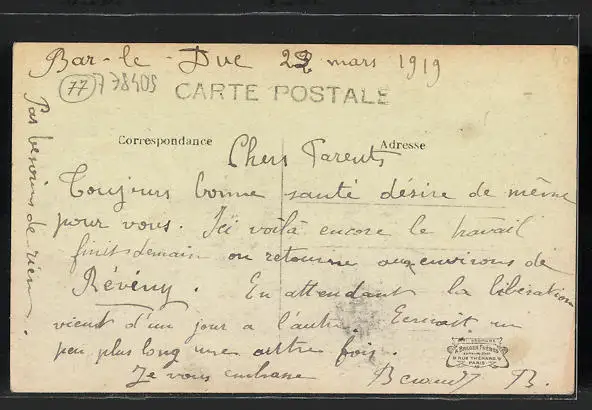 Bar-le-Duc 22 mars 1919
77 778405
CARTE POSTALE
Correspondance
Adresse
Chers Parents
Toujours bonne santé désire de même
pour vous. Ici voilà encore le travail
finit demain on retourne aux environs de
Révény. En attendant la libération
vient d'un jour a l'autre. Ecrirait un
peu plus long une autre fois.
Je vous embrasse B.
Pas besoins de rien.
A. BREGER FRÈRES
9 RUE THÉNARD
PARIS